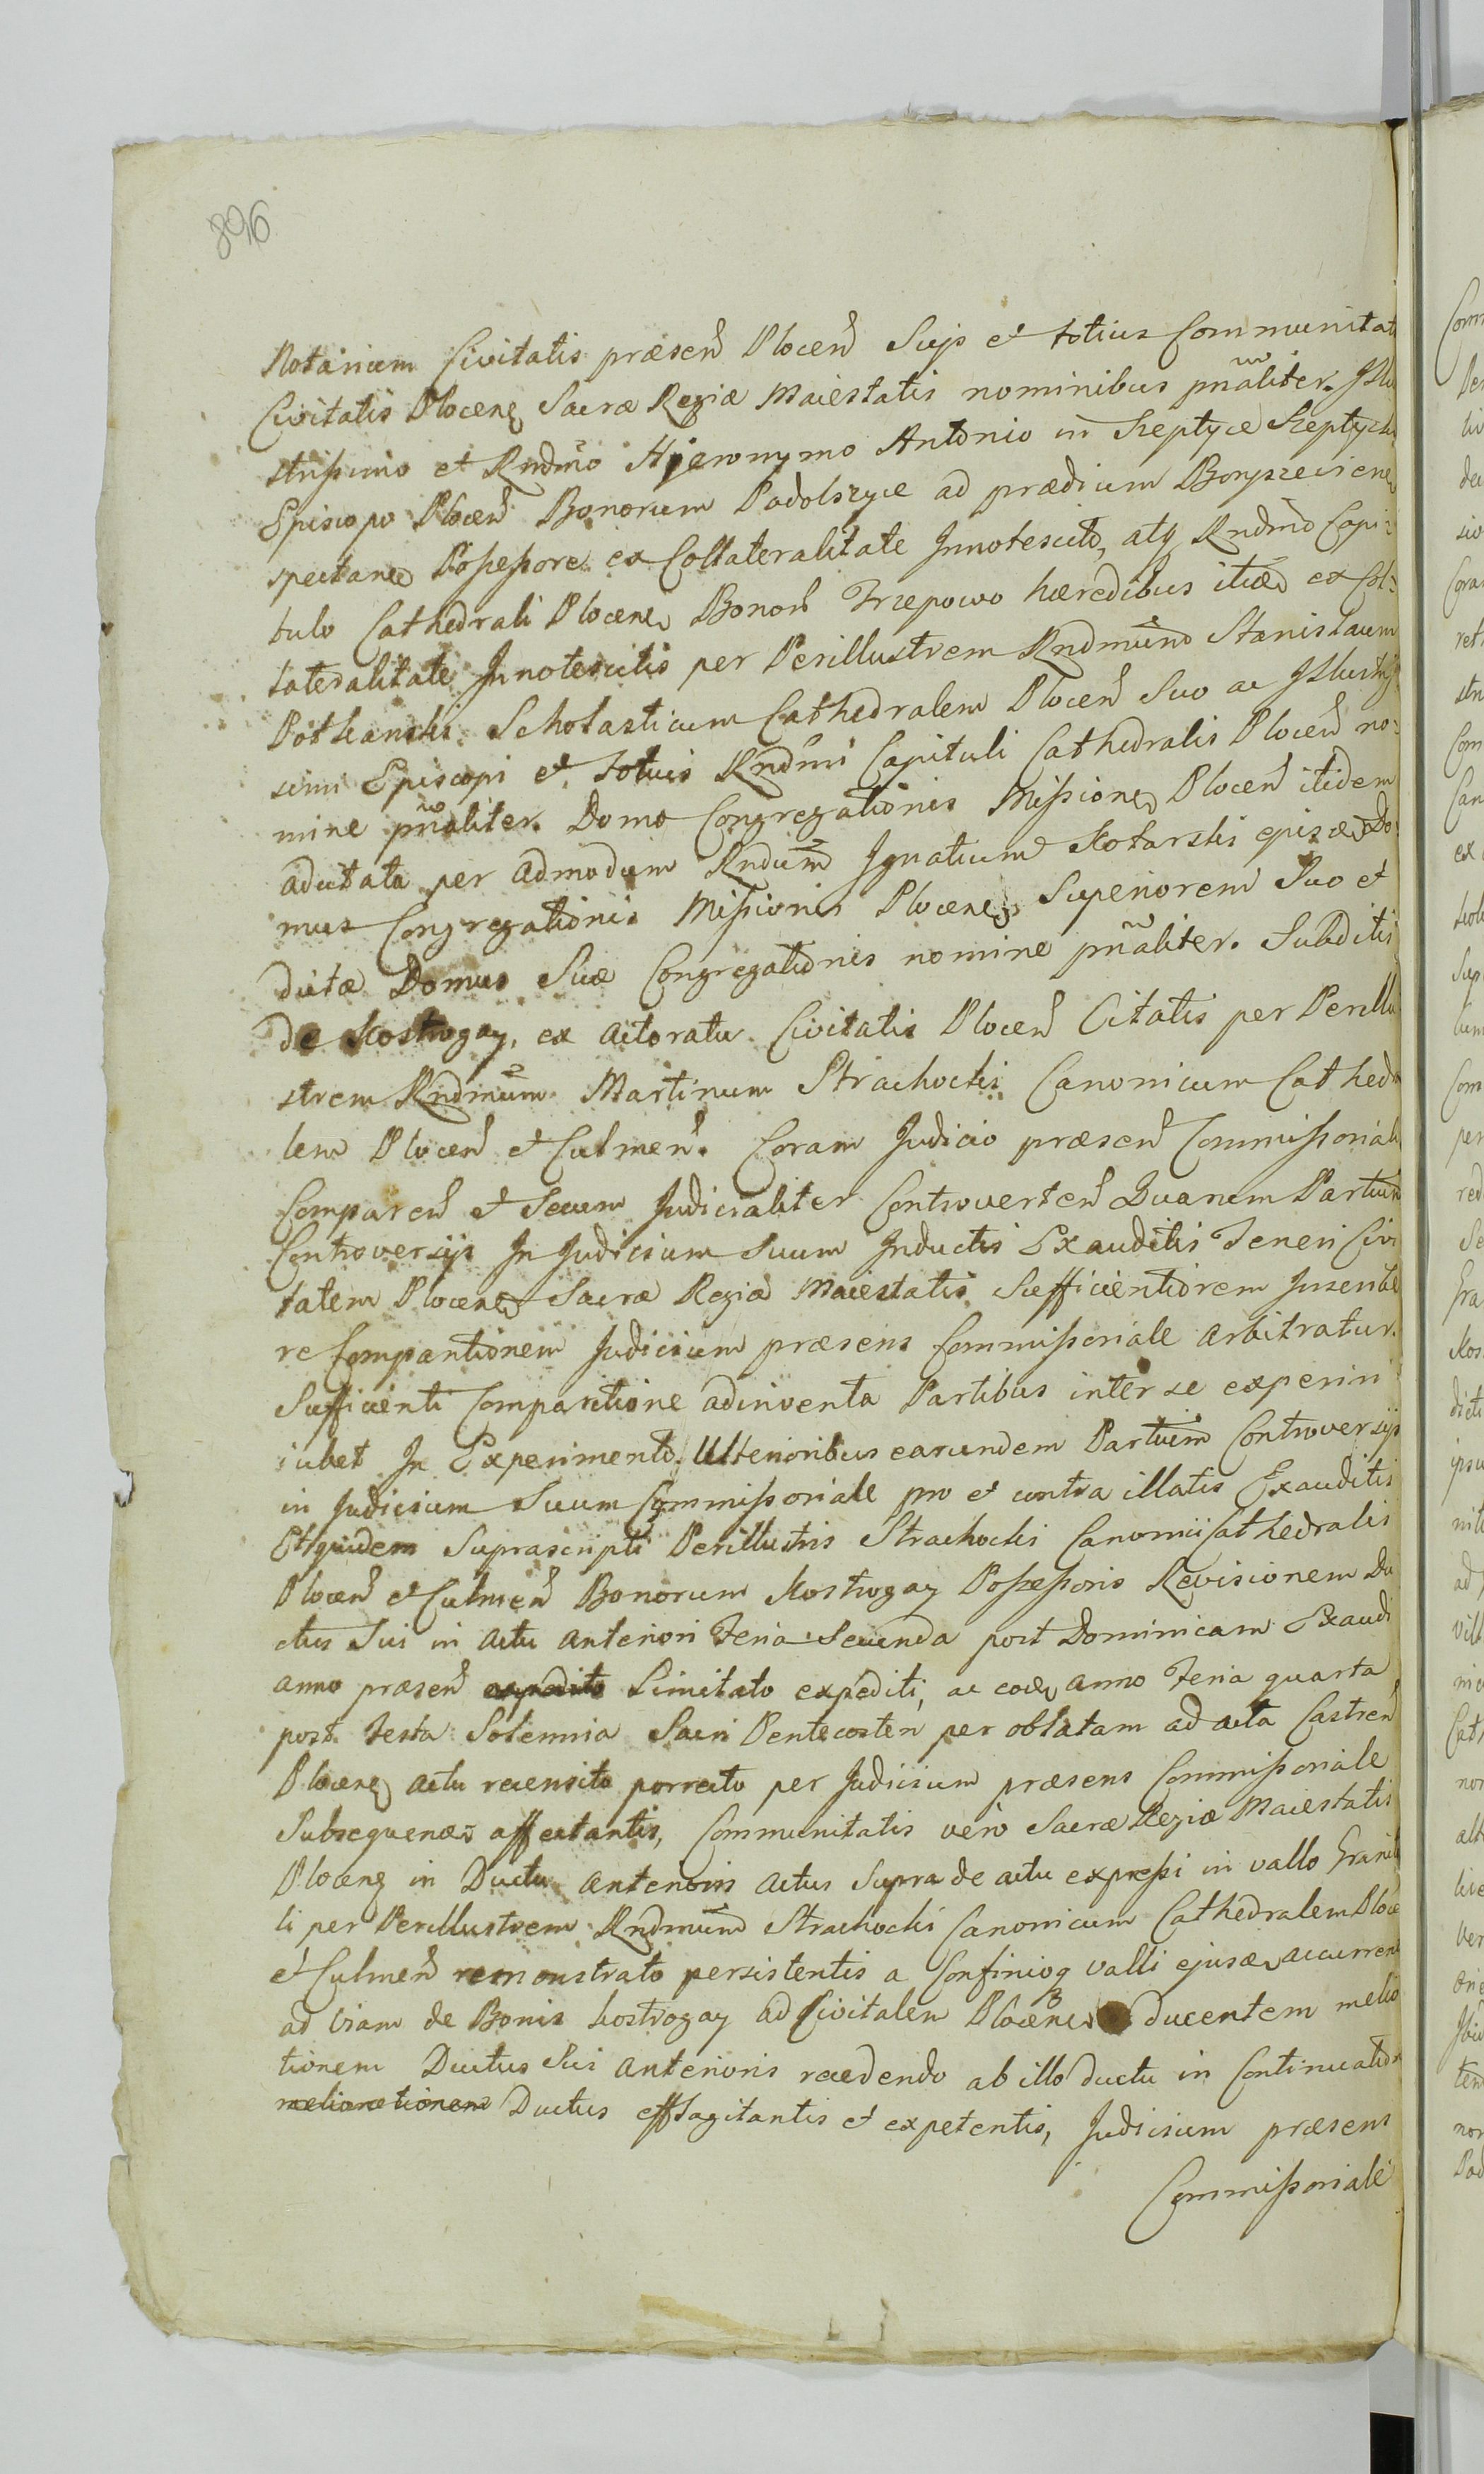 896
Notarium Civitatis præsen Plocen Suis et totius Communitat
Civitatis Plocenę Sacræ Regiæ Maiestatis nominibus pñaliter. Illu
strissimo et Rndmo Hieronymo Antonio in Szeptyce Szeptycki
Episcopo Plocen Bonorum Podolszyce ad prædium Boryszewiene
spectane Possessore ex Collateralitate Innotescito, atq Rndmo Capi:
tulo Cathedrali Plocene Bonor Trzepowo hæredibus itid ex Col:
lateralitate Innotescitis per Perillustrem Rndmum Stanislaum
Pothanski Scholasticum Cathedralem Plocen Suo ac Illustris
simi Episcopi et Totius Rndmi Capituli Cathedralis Plocen no:
mine pñaliter. Domo Congregationis Missione Plocen itidem
adcitata per admodum Rndum Ignatium Kotarski episce Do
mus Congregationis Missionis Plocene Superiorem Suo et
dictæ Domus Suæ Congregationis nomine pñaliter. Subditis
de Kostrogay, ex actoratu Civitatis Plocen Citatis per Perillu
strem Rndmum Martinum Strachocki Canonicum Cathedra
lem Plocen et Culmen. Coram Judicio præsen Commissoriali
Comparen et Secum Judicialiter Controverten Quarum Partium
Controversijs In Judicium Suum Inductis Exauditis Teneri Civi
tatem Plocene Sacræ Regiæ Maiestatis Sufficientiorem Inseribe
re Comparitionem Judicium præsens Commissoriale arbitratur.
Sufficienti Comparitione adinventa Partibus inter se experiri
iubet In Experimento. Ulterioribus earundem Partium Controversijs
in Judicium Suum Commissoriale pro et contra illatis Exauditis
Etquidem Suprascripti Perillustris Strachocki Canonici Cathedralis
Plocen et Culmen Bonorum Kostrogay Possessoris Revisionem Du
ctus Sui in actu anteriori Feria Secunda post Dominicam Exaudi
anno præsen expedito Limitato expediti, ac eod anno Feria quarta
post Festa Solennia Sacri Pentecosten per oblatam ad acta Castren
Plocenę actu recensito porrecto per Judicium præsens Commissoriale
Subsequenær affectantis, Communitatis vero Sacræ Regiæ Maiestatis
Plocenę in Ductu anterioris actus Supra de actu expressi in vallo Grani
li per Perillustrem Rndmum Strachocki Canonicum Cathedralem Ploce
et Culmen remonstrato persistentis a Confinioq valli ejusd accurrent
ad Viam de Bonis Kostrogay ad Civitatem Plocene ducentem melio
tionem Ductus Sui anterioris recedendo ab illo ductu in Continuatio
meliorationem Ductus efflagitantis et expetentis, Judicium præsens
Commissoriale